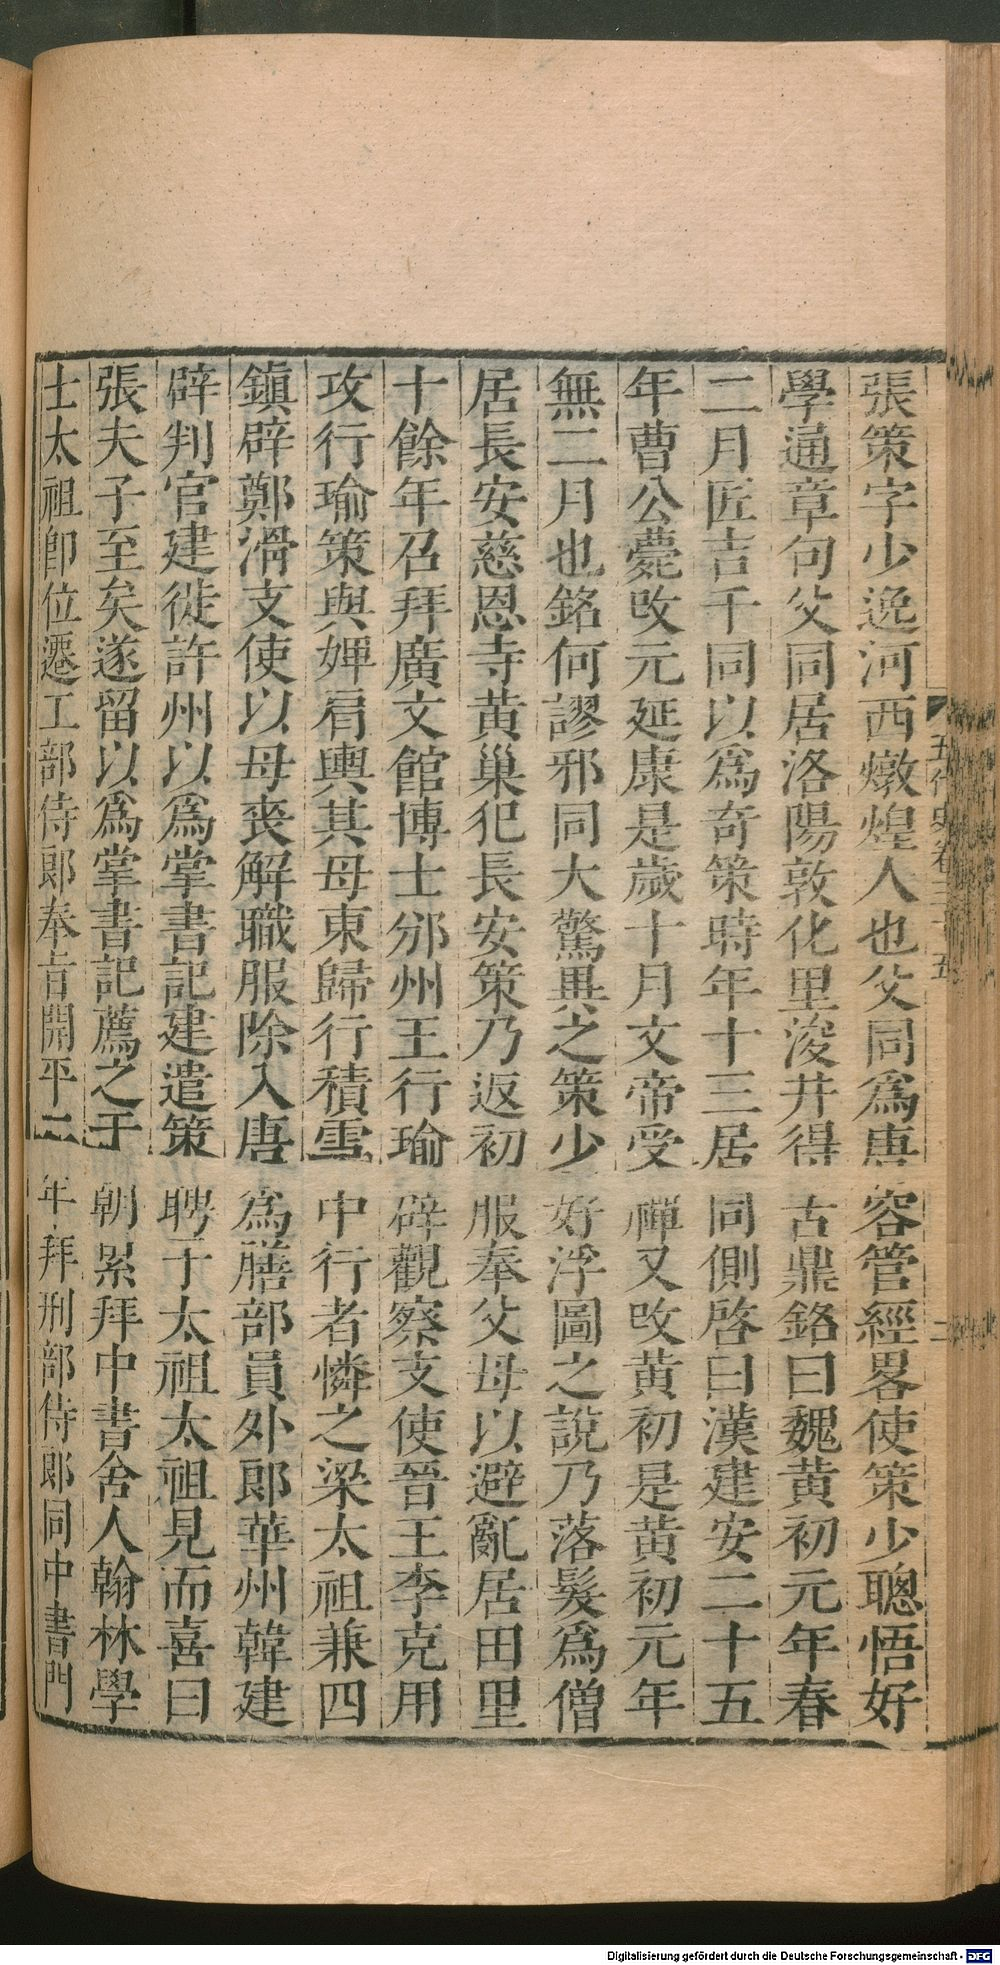 張策字少逸河西燉煌人也父同爲唐容管經畧使策少聰悟好
學通章句父同居洛陽敦化里浚井得古鼎銘曰魏黄初元年春
二月匠吉千同以爲奇策時年十三居同側啓曰漢建安二十五
年曹公薨改元延康是歲十月文帝受禪又改黄初是黄初元年
無二月也銘何謬邪同大驚異之策少好浮圖之說乃落髮爲僧
居長安慈恩寺黄巢犯長安策乃返初服奉父母以避亂居田里
十餘年召拜廣文館博士邠州王行瑜辟觀察支使晉王李克用
攻行瑜策與婢肩輿其母東歸行積雪中行者憐之梁太祖兼四
鎮辟鄭滑支使以母喪解職服除入唐爲膳部員外郎華州韓建
辟判官建徙許州以爲掌書記建遣策聘于太祖太祖見而喜曰
張夫子至矣遂留以爲掌書記薦之于朝累拜中書舍人翰林學
士太祖卽位遷工部侍郎奉旨開平二年拜刑部侍郎同中書門
五代史卷三十五
二
Digitalisierung gefördert durch die Deutsche Forschungsgemeinschaft - DFG